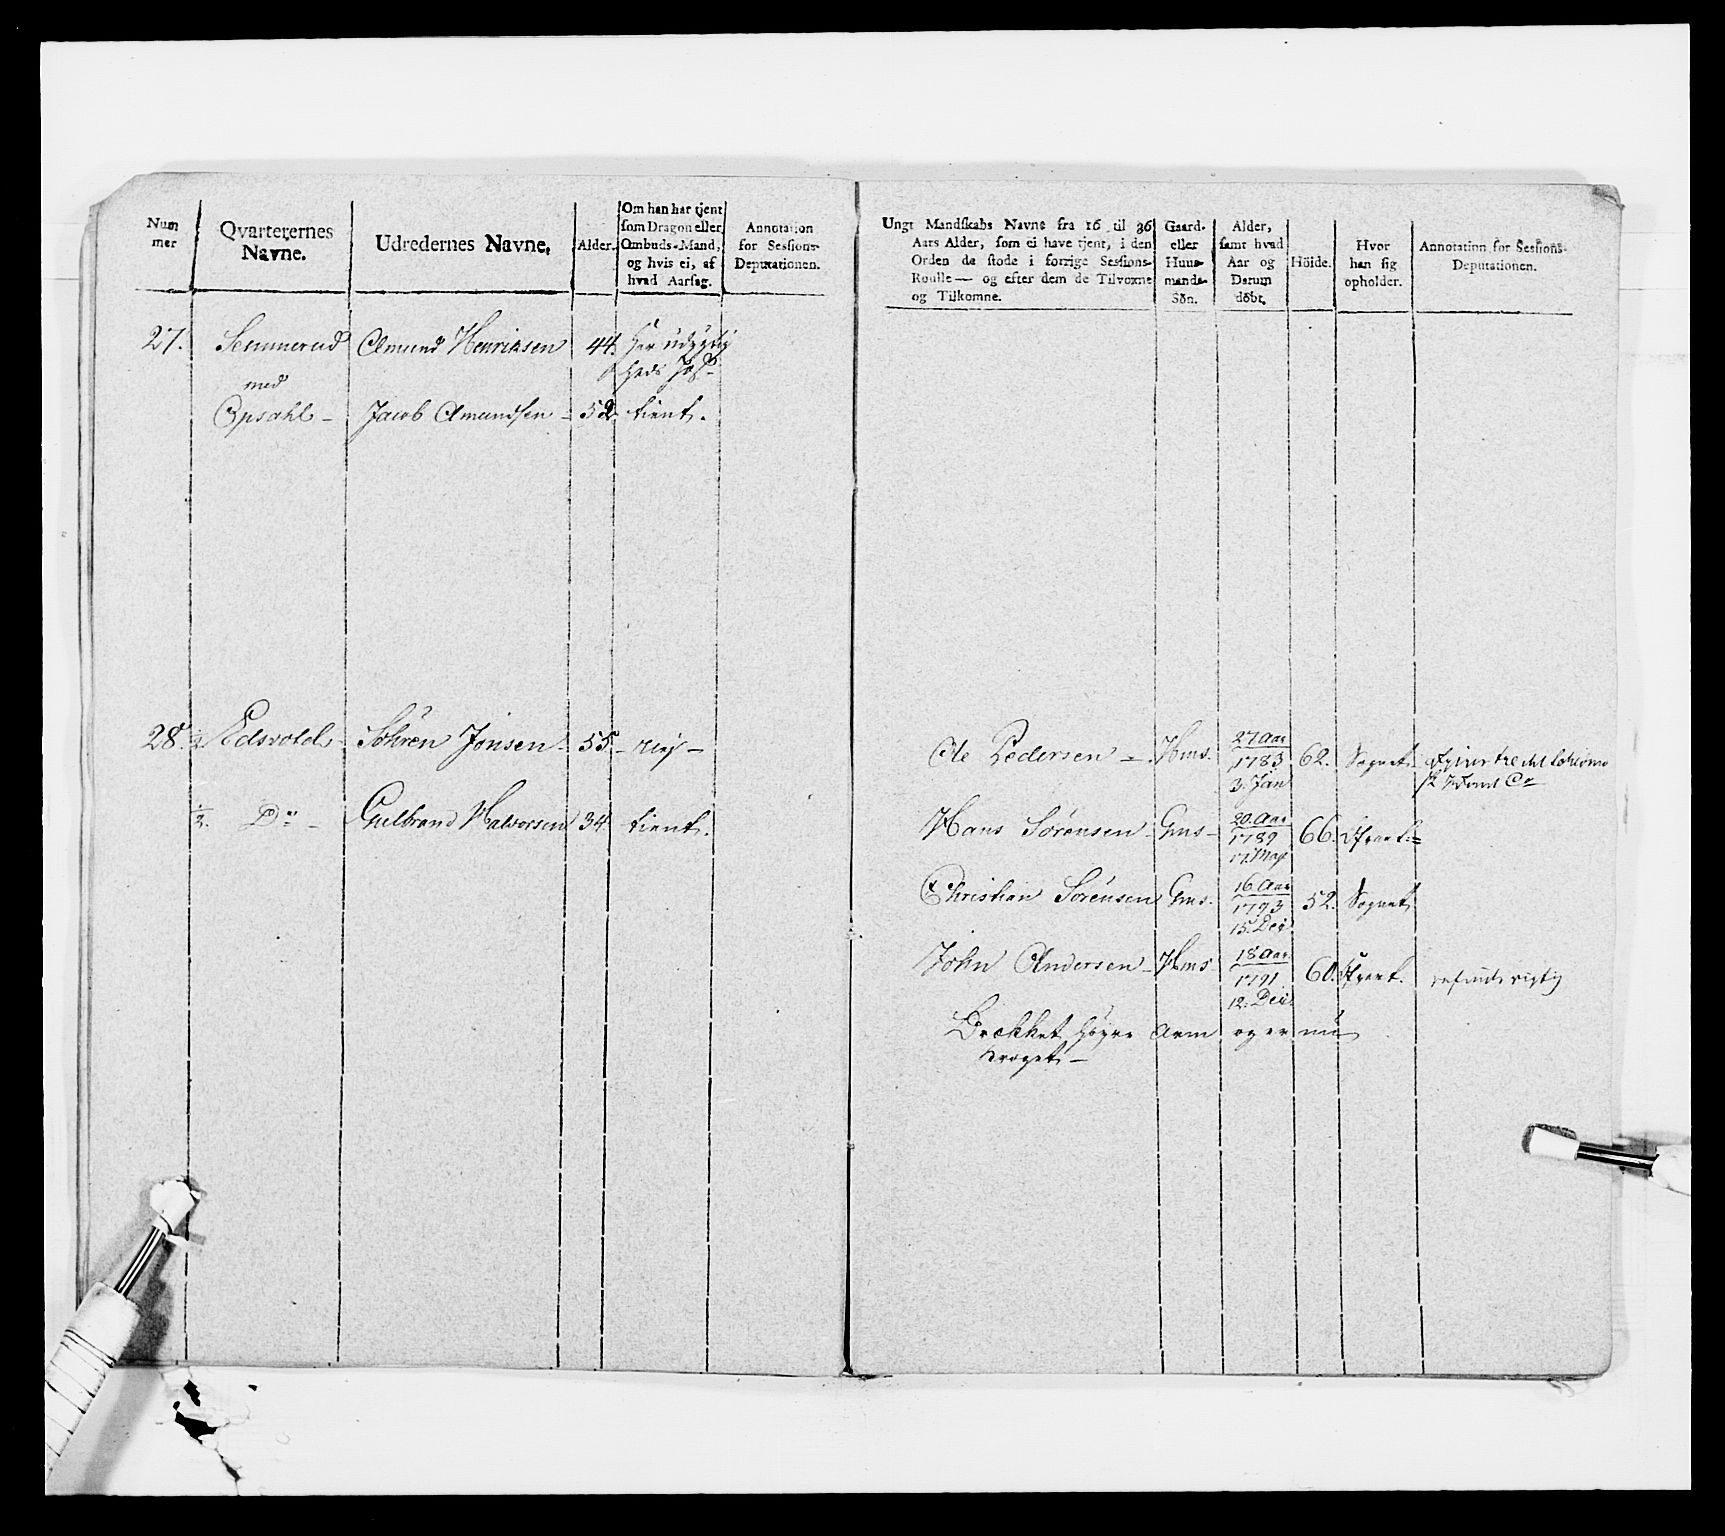 Num
mer
Qvarterernes
Navne.
Udredernes Navne,
Alder.
Om han har tjent
som Dragon eller
Ombuds-Mand,
og hvis ei, af
hvad Aarsag.
Annotation
for Sessions-
Deputationen.
27. Semmerud Amund Henriksen 44.
med
Opsahl - Jacob Amundsen - 52. tient.
28. ½ Edsvold - Söhren Jonsen - 55. - Nej -
½. Do - Gulbrand Halvorsen 34. tient.
Ungt Mandskabs Navne fra 16 til 36
Aars Alder, som ei have tjent, i den
Orden de stode i forrige Sessions-
Roulle — og efter dem de Tilvoxne
og Tilkomne.
Gaard-
eller
Huus-
mands-
Sön.
Alder,
samt hvad
Aar og
Datum
döbt.
Höide.
Hvor
han sig
opholder.
Annotation for Sessions-
Deputationen.
27 Aar
Ole Pedersen - Hms. 1783 62. Sognet
3. Jan
20. Aar
Hans Sörensen - Gms - 1789 66.
17. May
16 Aar
Christian Sörensen Gms. 1793 52. Sognet
15. Dec
18 Aar
John Andersen - Hms 1791 60. rigtig
12. Dec
Brækket höyre Arm og er nu